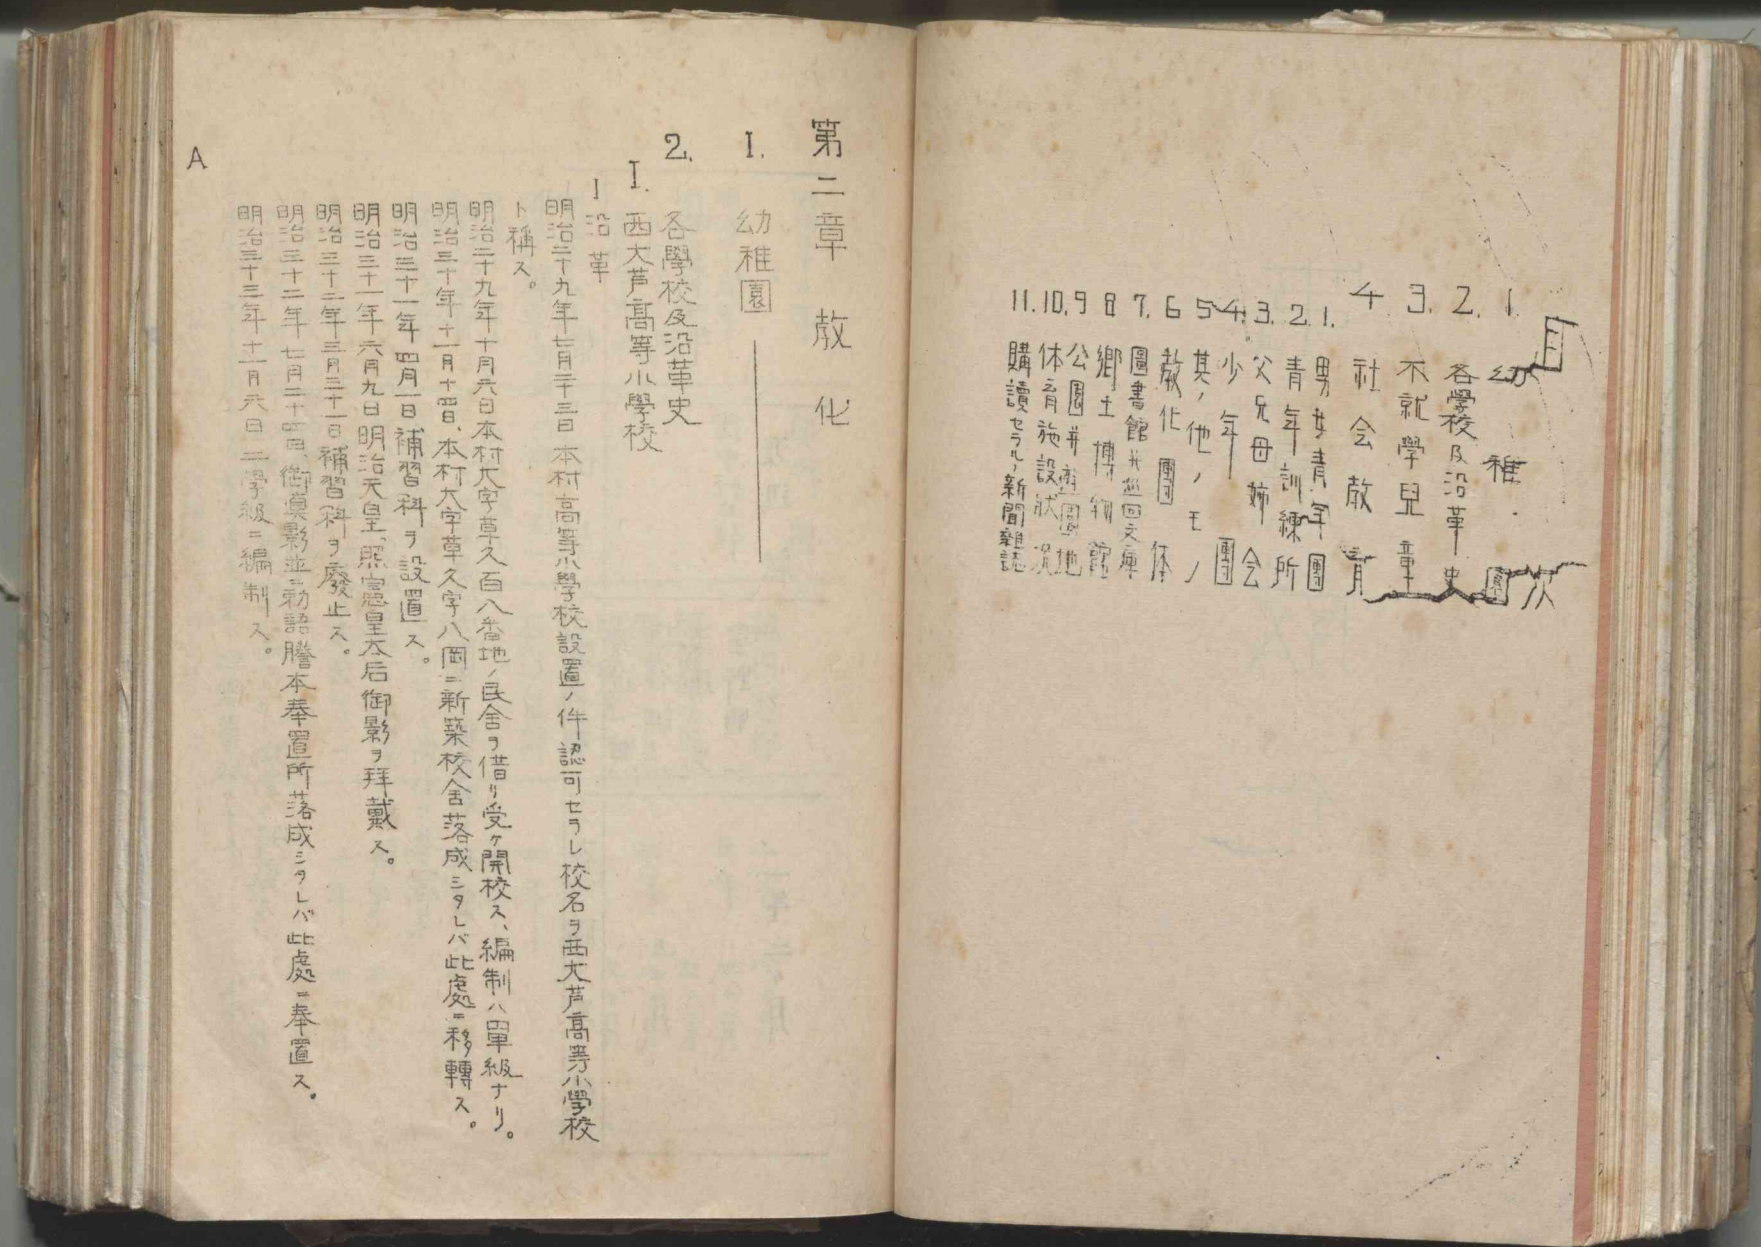 目次
1. 幼稚園
2. 各學校及沿革史
3. 不就學兒童
4 社会敎育
1. 男女青年團
2. 青年訓練所
3. 父兄母姉会
4. 少年團
5 其ノ他ノモノ
6 敎化團体
7. 圖書館并巡回文庫
8 鄉土博物館
9 公園并遊園地
10. 体育施設狀況
11. 購讀セラルヽ新聞雜誌
第二章 敎化
1. 幼稚園
2. 各學校及沿革史
I. 西大芦高等小學校
1 沿革
明治二十九年七月二十三日本村高等小學校設置ノ件認可セラレ校名ヲ西大芦高等小學校
ト稱ス。
明治二十九年十月六日本村大字草久百八番地ノ民舍ヲ借リ受ケ開校ス、編制ハ單級ナリ。
明治三十年十一月十四日、本村大字草久字八岡ニ新築校舍落成シタレバ此處ニ移轉ス。
明治三十一年四月一日補習科ヲ設置ス。
明治三十一年六月九日明治天皇、照憲皇太后御影ヲ拜戴ス。
明治三十二年三月三十一日補習科ヲ廢止ス。
明治三十二年七月二十四日、御眞影並ニ勅語謄本奉置所落成シタレバ此處ニ奉置ス。
明治三十三年十一月六日二學級ニ編制ス。
A